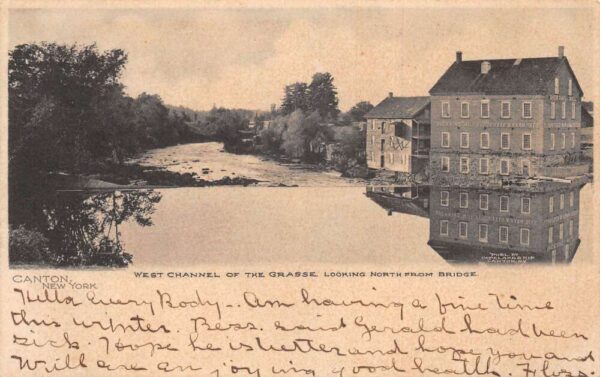 WEST CHANNEL OF THE GRASSE LOOKING NORTH FROM BRIDGE.
PUBL. BY
CANTON, N.Y.
CANTON,
NEW YORK
Hella Every Body -- Am having a fine Time
this winter. Bess. said Gerald had been
sick. Hope he is better and hope you and
Will are an joying good health. Floss.